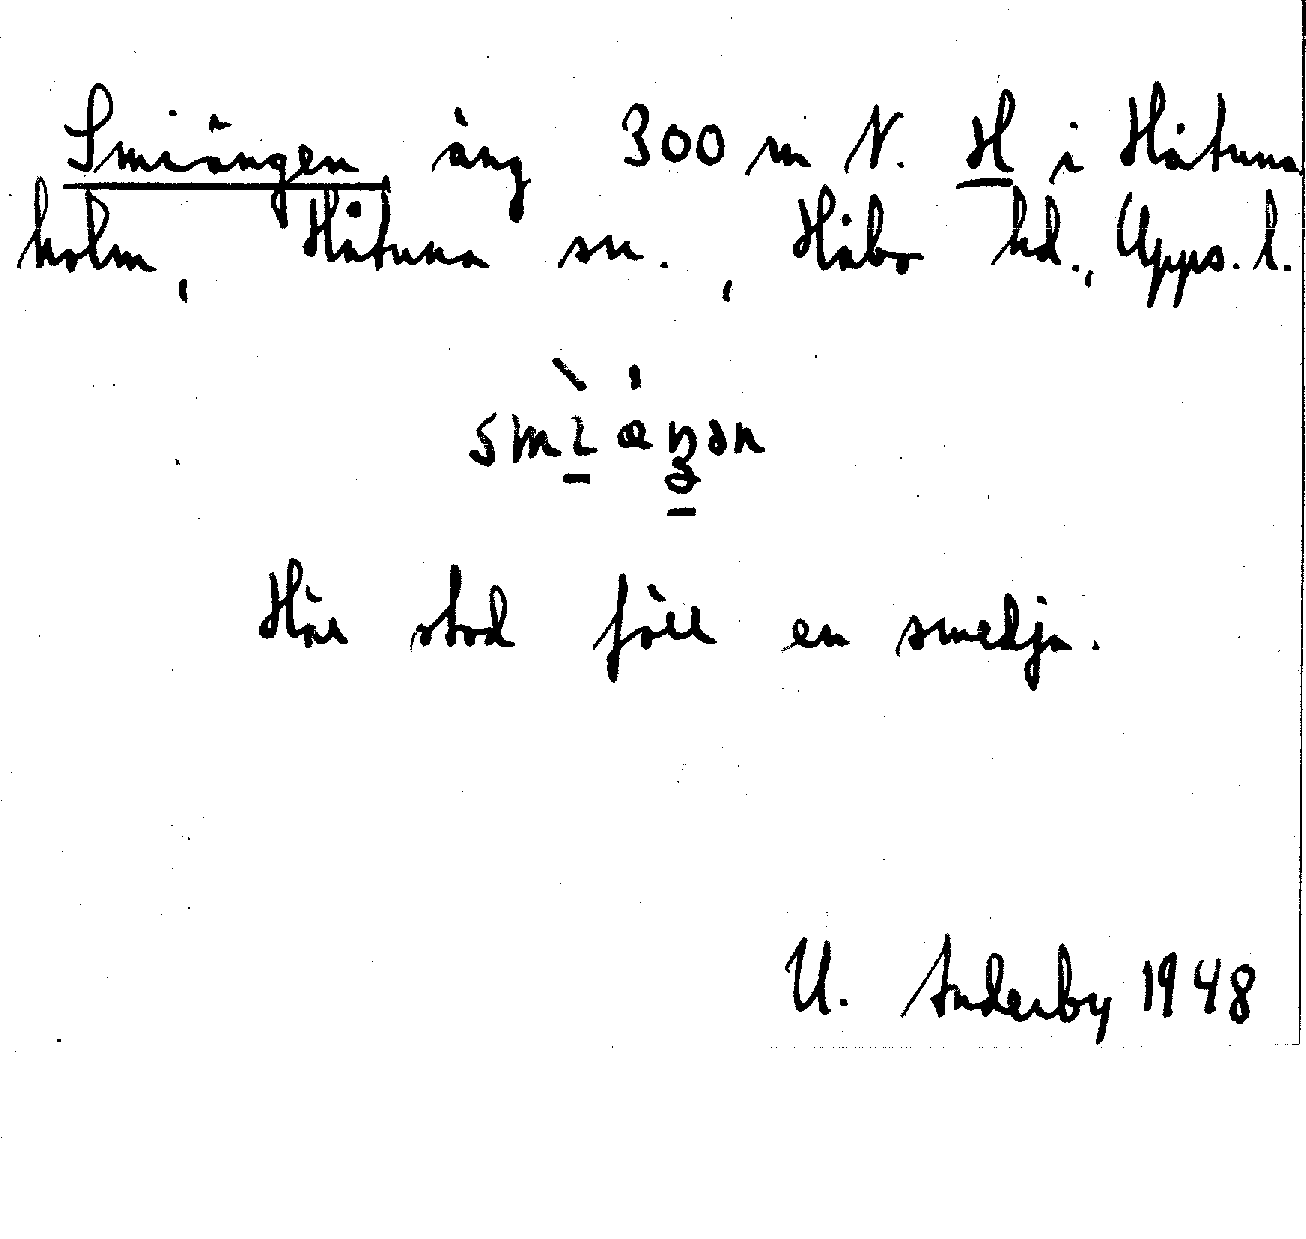 Smiängen äng 300 m N. H i Håtuna
holm, Håtuna sn., Håbo hd., Upps. l.
Här stod förr en smedja.
U. Anderby 1948